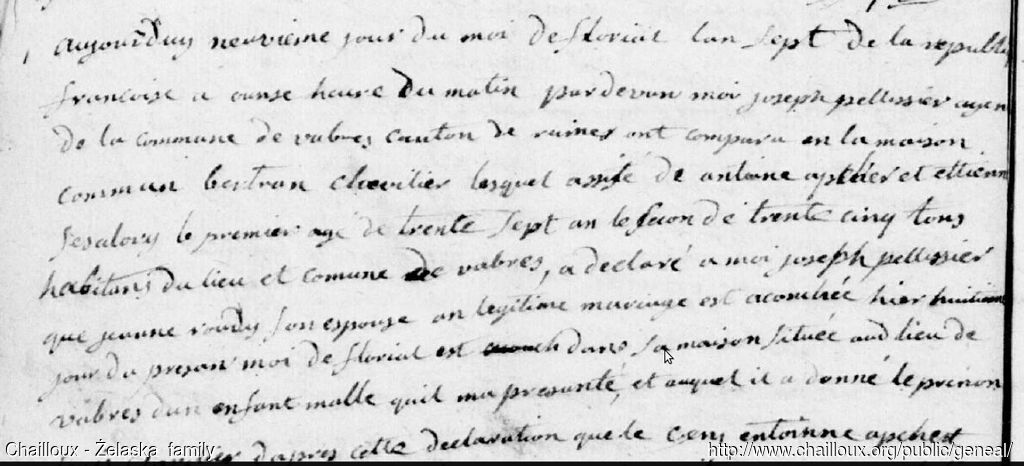 aujourduy neuvieme jour du moi de floriat lan sept de la republi
francoise a ounse heure du matin pardevan moi joseph pellissier agen
de la commune de vabres canton de ruines ont compara en la maison
commun bertran chevilier lesquel assisté de antoine aptcier et ettienn
le premier agé de trente sept an le segon de trente cinq tous
habitans du lieu et comune de vabres, a declaré a moi joseph pellissier
que jeanne roudy son espouse an legitime mariage est acouchée hier huitieme
jour du presan moi de floriat est dans sa maison située aud lieu de
vabres dun enfant malle quil ma presanté, et auquel il a donné le prenon
dapres cette declaration que le entoinne apcher
Chailloux - Żelaska family
http://www.chailloux.org/public/geneal/